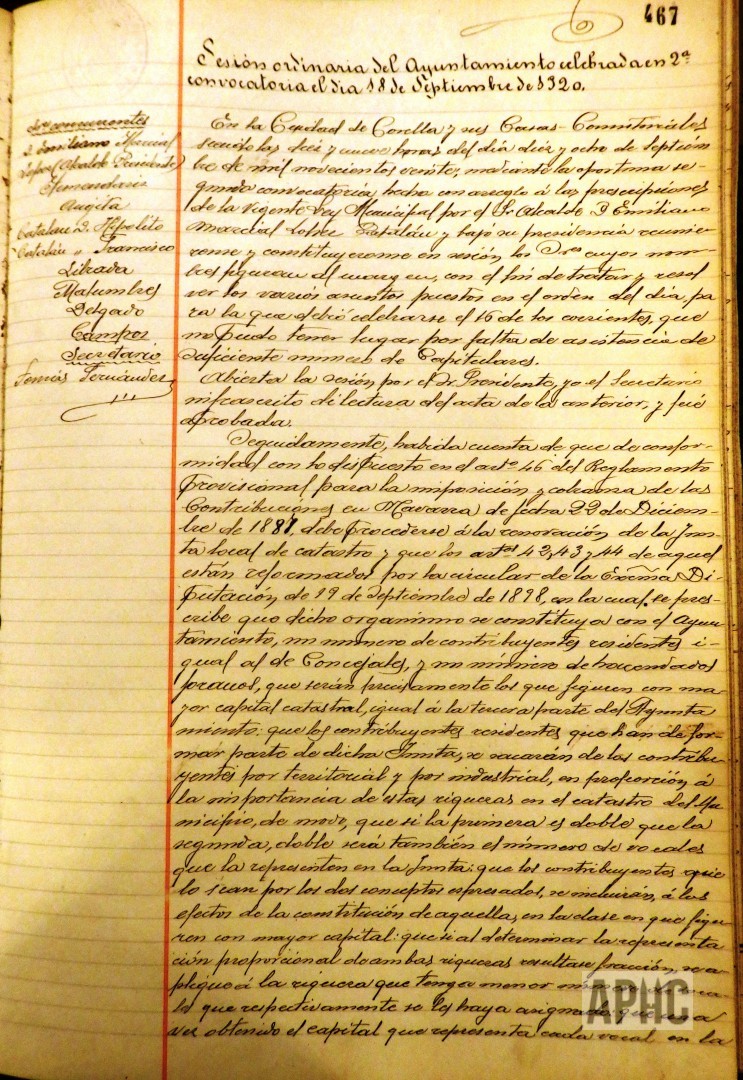 467
Sesión ordinaria del Ayuntamiento celebrada en 2ª
convocatoria el dia 18 de Septiembre de 1920.
Sres concurrentes
D. Emiliano Marcial
Lopez (Alcalde Presidente)
Argita
Catalan D. Hipolito
Catalán " Francisco
Librada
Malumbres
Delgado
Campos
Secretario
Tomás Fernández
En la Ciudad de Corella y sus Casas-Consistoriales
siendo las diez y nueve horas del día diez y ocho de Septiem
bre de mil novecientos veinte, mediante la oportuna se-
gunda convocatoria hecha con arreglo á las prescripciones
de la vigente Ley Municipal por el Sr Alcalde D Emiliano
Marcial Lopez Catalán y bajo su presidencia reunie-
ronse y constituyeronse en sesión los Sres cuyos nom-
bres figuran al margen, con el fin de tratar y resol
ver los varios asuntos puestos en el orden del dia, pa
ra la que debió celebrarse el 16 de los corrientes, que
no pudo tener lugar por falta de asistencia de
suficiente número de Capitulares.
Abierta la sesión por el Sr Presidente, yo el Secretario
infrascrito di lectura del acta de la anterior, y fué
aprobada.
Seguidamente, habida cuenta de que de confor-
midad con lo dispuesto en el artº 46 del Reglamento
provisional para la imposición y cobranza de las
Contribuciones en Navarra de fecha 22 de Diciem-
bre de 1887, debe procederse á la renovación de la Jun-
ta local de catastro y que los artos 42, 43 y 44 de aquel
están reformados por la circular de la Excma Di-
putación, de 29 de Septiembre de 1898, en la cual se pres-
cribe que dicho organismo se constituya con el Ayun-
tamiento, un número de contribuyentes residentes i-
gual al de Concejales, y un número de hacendados
foraneos, que serán precisamente los que figuren con ma
yor capital catastral, igual á la tercera parte del Ayunta
miento: que los contribuyentes residentes que han de for-
mar parte de dicha Junta, se sacarán de los contribu-
yentes por territorial y por industrial, en proporción á
la importancia de estas riquezas en el catastro del Mu-
nicipio, de modo, que si la primera es doble que la
segunda, doble será también el número de vocales
que la representen en la Junta: que los contribuyentes que
lo sean por los dos conceptos espresados, se incluirán, á los
efectos de la constitución de aquella, en la clase en que figu-
ren con mayor capital: que si al determinar la representa
ción proporcional de ambas riquezas resultase fracción, se a-
plique á la riqueza que tenga menor
lo que respectivamente se les haya asignado: que una
vez obtenido el capital que representa cada vocal en la
APHC